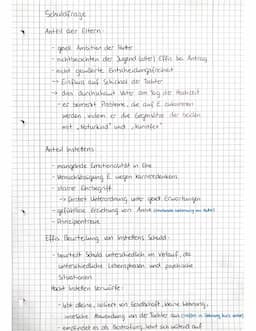 Schuldfrage
Anteil der Eltern:
- gesell. Ambition der Mutter
- nichtbeachten der Jugend (alter) Effis bei Antrag
- nicht geäußerte Entscheidungsfreiheit
-> Einfluss auf Schicksal der Tochter
-> dies durchschaut Vater am Tag der Hochzeit
- er bemerkt Probleme, die auf E. zukommen
werden, indem er die Gegensätze der beiden
mit "Naturkind" und "Kunstfex"
Anteil Instettens
- mangelnde Emotionalität in Ehe
- Vernachlässigung E. wegen Karrieredenkens
- starrer Ehrbegriff
-> fordert Unterordnung unter gesell. Erwartungen
- gefühllose Erziehung von Annie
- Prinzipientreue
Effis Beurteilung von Instettens Schuld:
- beurteilt Schuld unterschiedlich im Verlauf, da
unterschiedliche Lebensphasen und psychische
Situationen
Macht Instetten Vorwürfe
- lebt alleine, isoliert von Gesellschaft, kleine Wohnung,
innerliche Abwendung von der Tochter aus
- empfindet es als Bestrafung, lehnt sich während auf